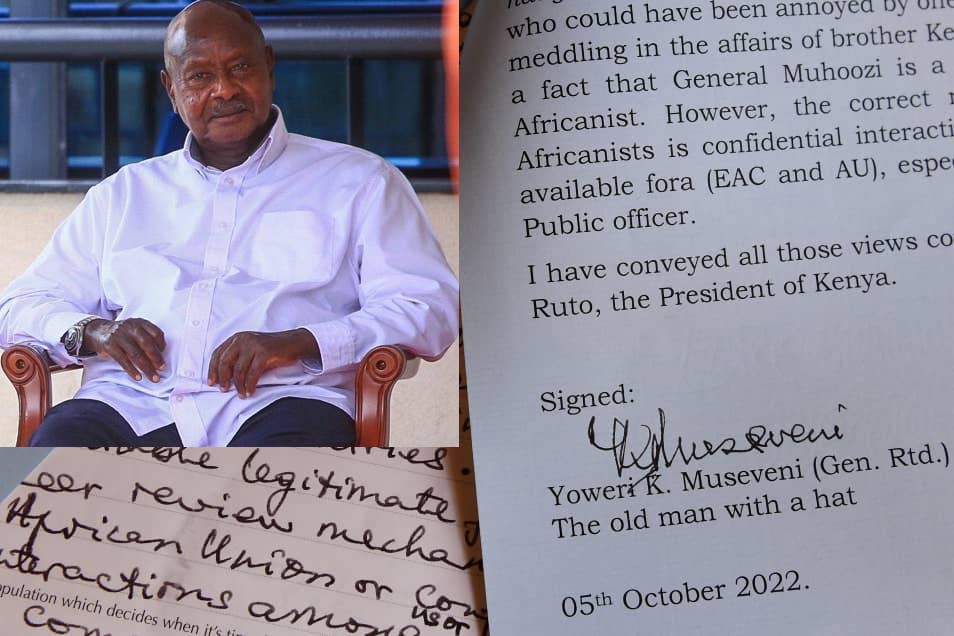 who could have been annoyed by one
meddling in the affairs of brother Ke
a fact that General Muhoozi is a
Africanist. However, the correct
Africanists is confidential interacti
available fora (EAC and AU), espe
Public officer.
I have conveyed all those views co
Ruto, the President of Kenya.
Signed:
YKMuseveni
Yoweri K. Museveni (Gen. Rtd.)
The old man with a hat
05th October 2022.
legitimate
eer review mechan
African Union or
nteractions among
opulation which decides when it's ti